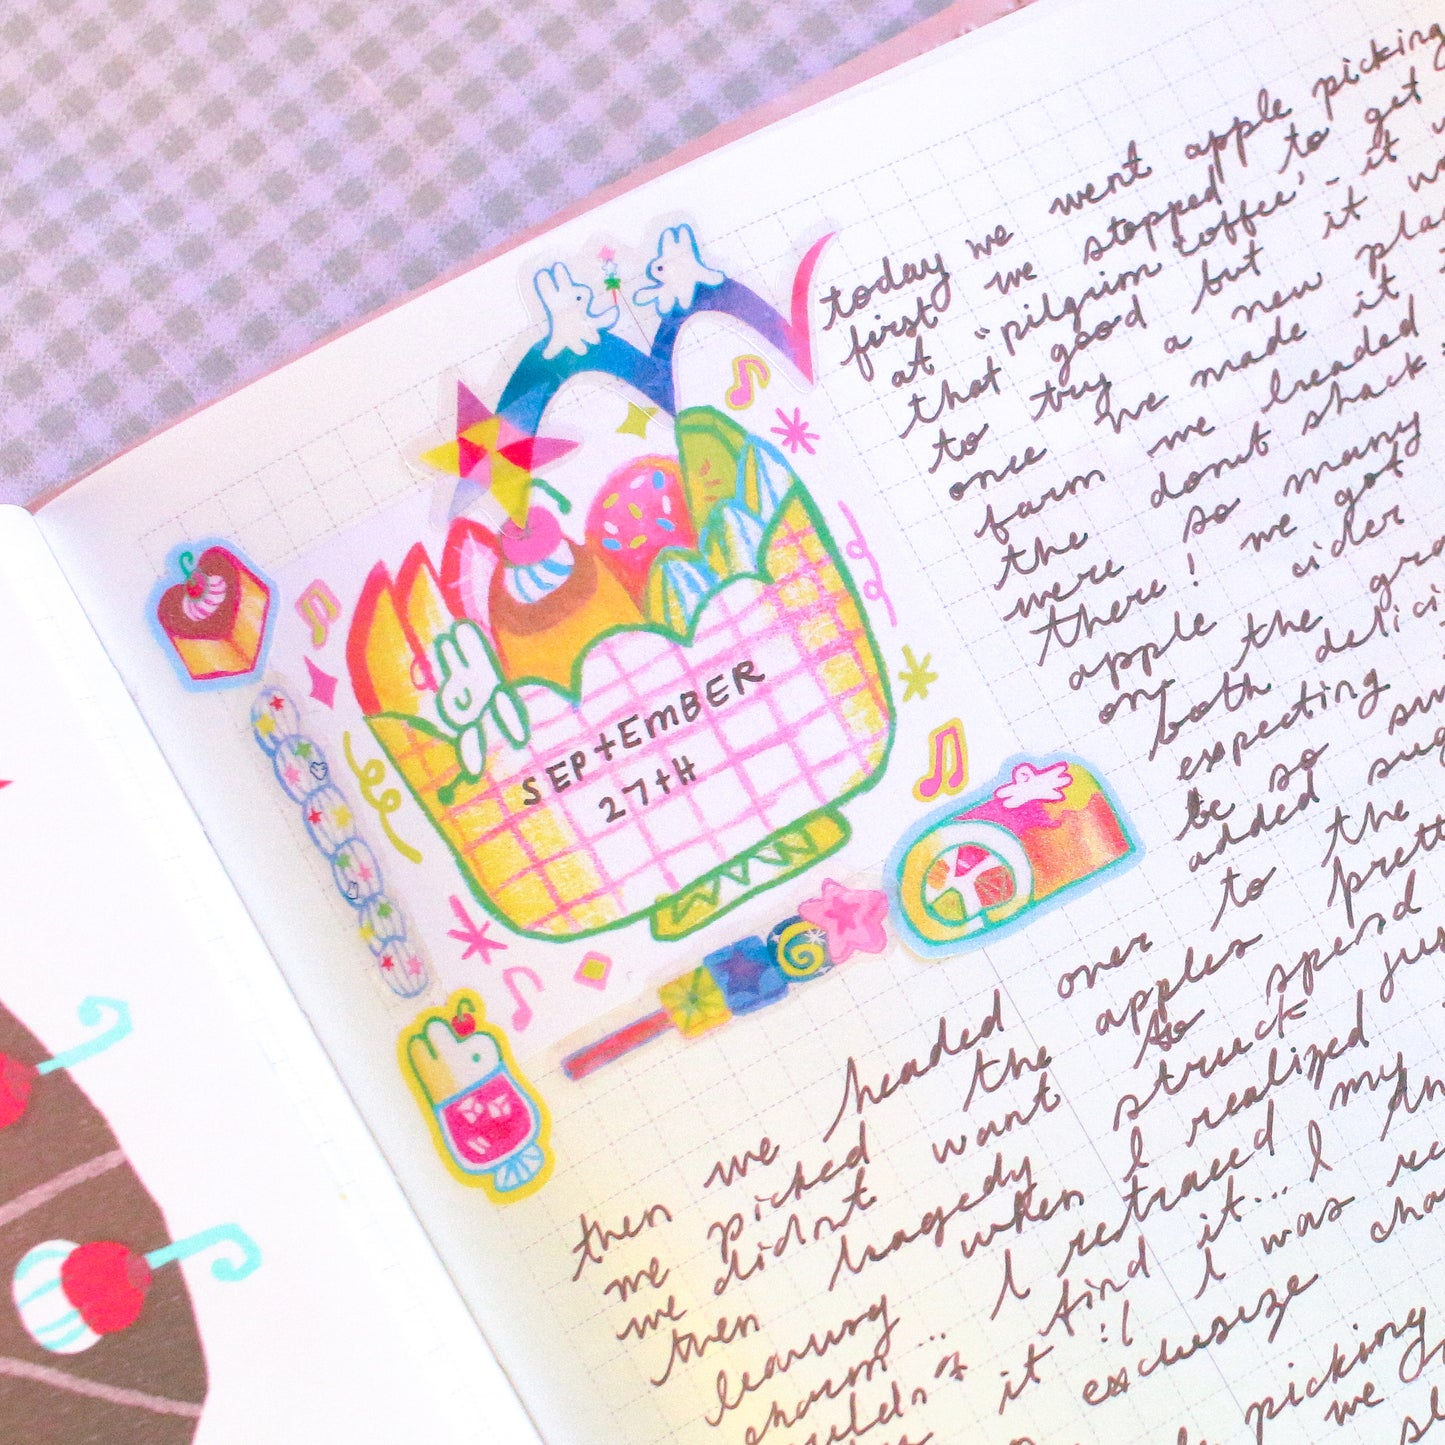 SEPTEMBER
27TH
today we went apple picking
first we stopped to get
at "pilgrim coffee" - it
that good but it
to try a new
once we made it
farm we headed
the donut shack
were so many
there! we got
apple cider
one the
both
expecting
be so
added
then we headed over to the
we picked the apples
we didnt want to spend
then tragedy struck
leaving when I realized
charm... I retraced my
find it... I
it :( I was
picking
we